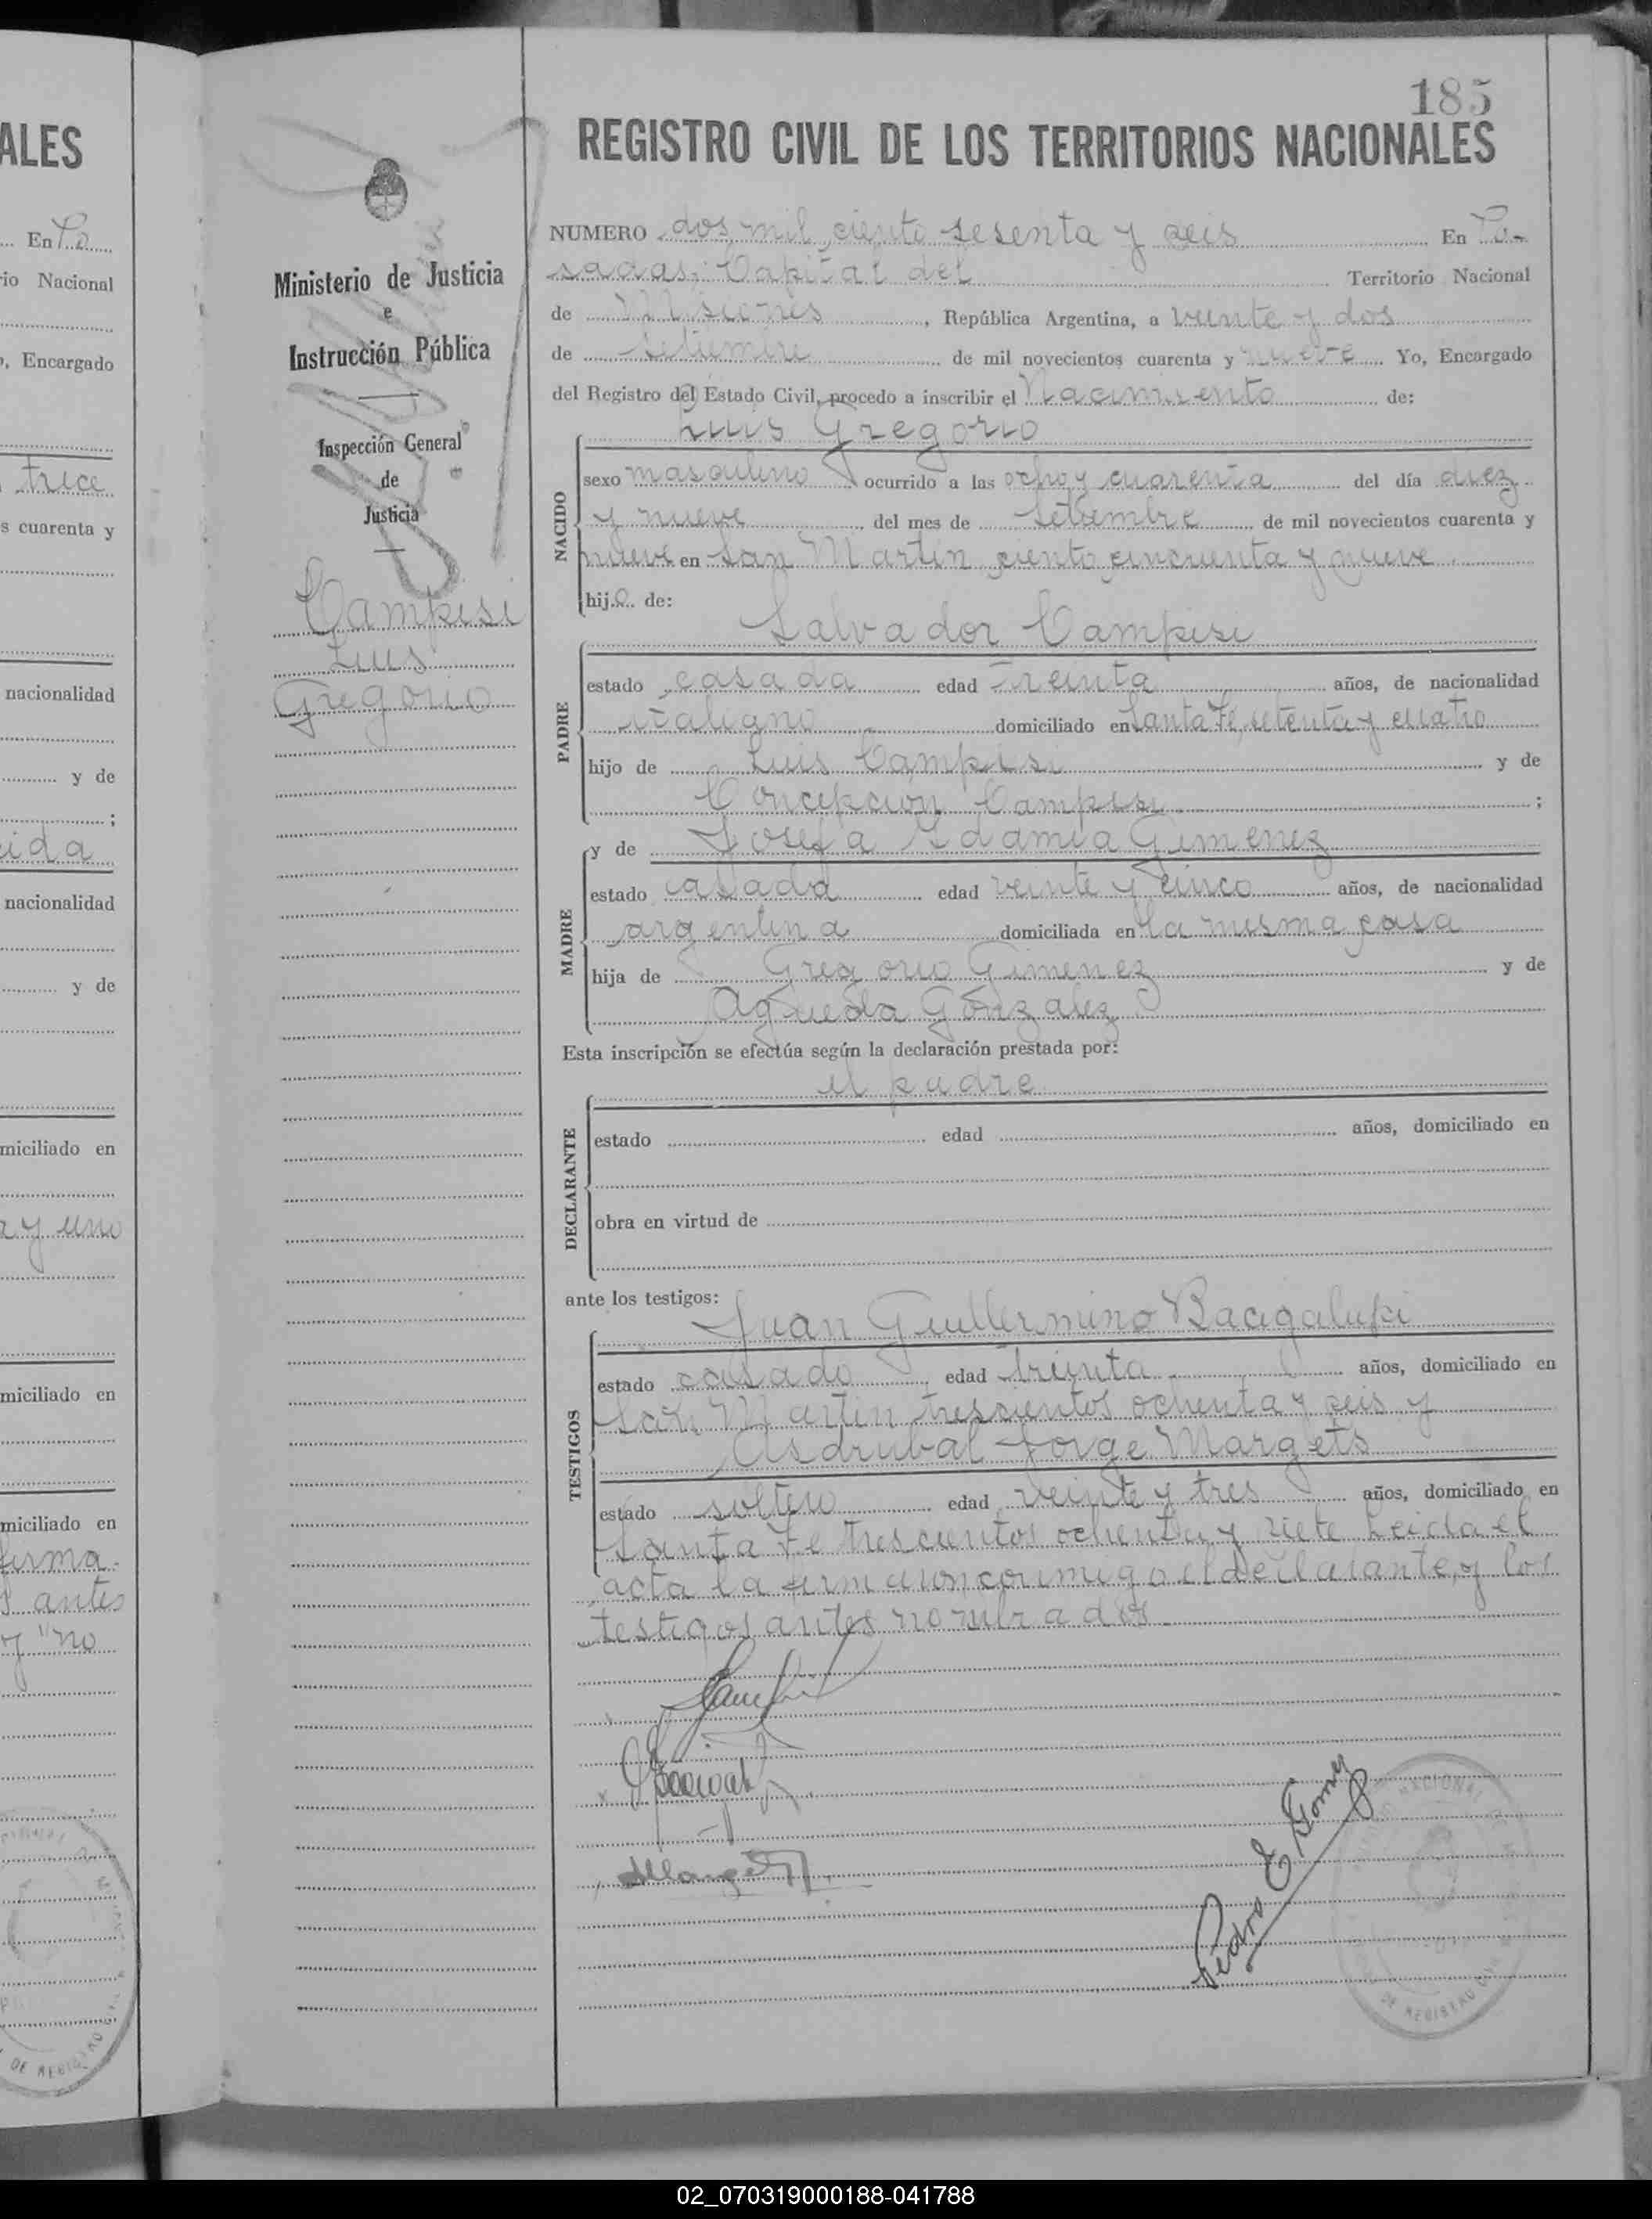 ALES
En Po
io Nacional
, Encargado
trece
s cuarenta y
nacionalidad
y de
;
ida
nacionalidad
y de
miciliado en
y uno
miciliado en
miciliado en
firma
antes
y "no
185
REGISTRO CIVIL DE LOS TERRITORIOS NACIONALES
Ministerio de Justicia
e
Instrucción Pública
Inspección General
de
Justicia
Campisi
Luis
Gregorio
NUMERO dos mil ciento sesenta y seis En Po-
sadas, Capital del Territorio Nacional
de Misiones, República Argentina, a veinte y dos
de setiembre de mil novecientos cuarenta y nueve Yo, Encargado
del Registro del Estado Civil, procedo a inscribir el Nacimiento de:
Luis Gregorio
NACIDO
sexo masculino ocurrido a las ocho y cuarenta del día diez
y nueve del mes de setiembre de mil novecientos cuarenta y
nueve en San Martin ciento cincuenta y nueve
hijo de:
Salvador Campisi
PADRE
estado casada edad Treinta años, de nacionalidad
italiano domiciliado en Santa Fé, setenta y cuatro
hijo de Luis Campisi y de
Concepcion Campisi ;
MADRE
y de Josefa Gimenez
estado casada edad veinte y cinco años, de nacionalidad
argentina domiciliada en la misma casa
hija de Gregorio Gimenez y de
Agueda Gonzalez
Esta inscripción se efectúa según la declaración prestada por:
el padre
DECLARANTE
estado edad años, domiciliado en
obra en virtud de
ante los testigos:
Juan Guillermino Bacigalupi
TESTIGOS
estado casado edad treinta años, domiciliado en
San Martin trescientos ochenta y seis y
Asdrubal Jorge Margets
estado soltero edad veinte y tres años, domiciliado en
Santa Fe trescientos ochenta y siete Leida el
acta la firmaron conmigo el declarante, y los
testigos antes nombrados
Pedro E Gomez
NACIONAL
DE REGISTRO CIVIL
02_070319000188-041788